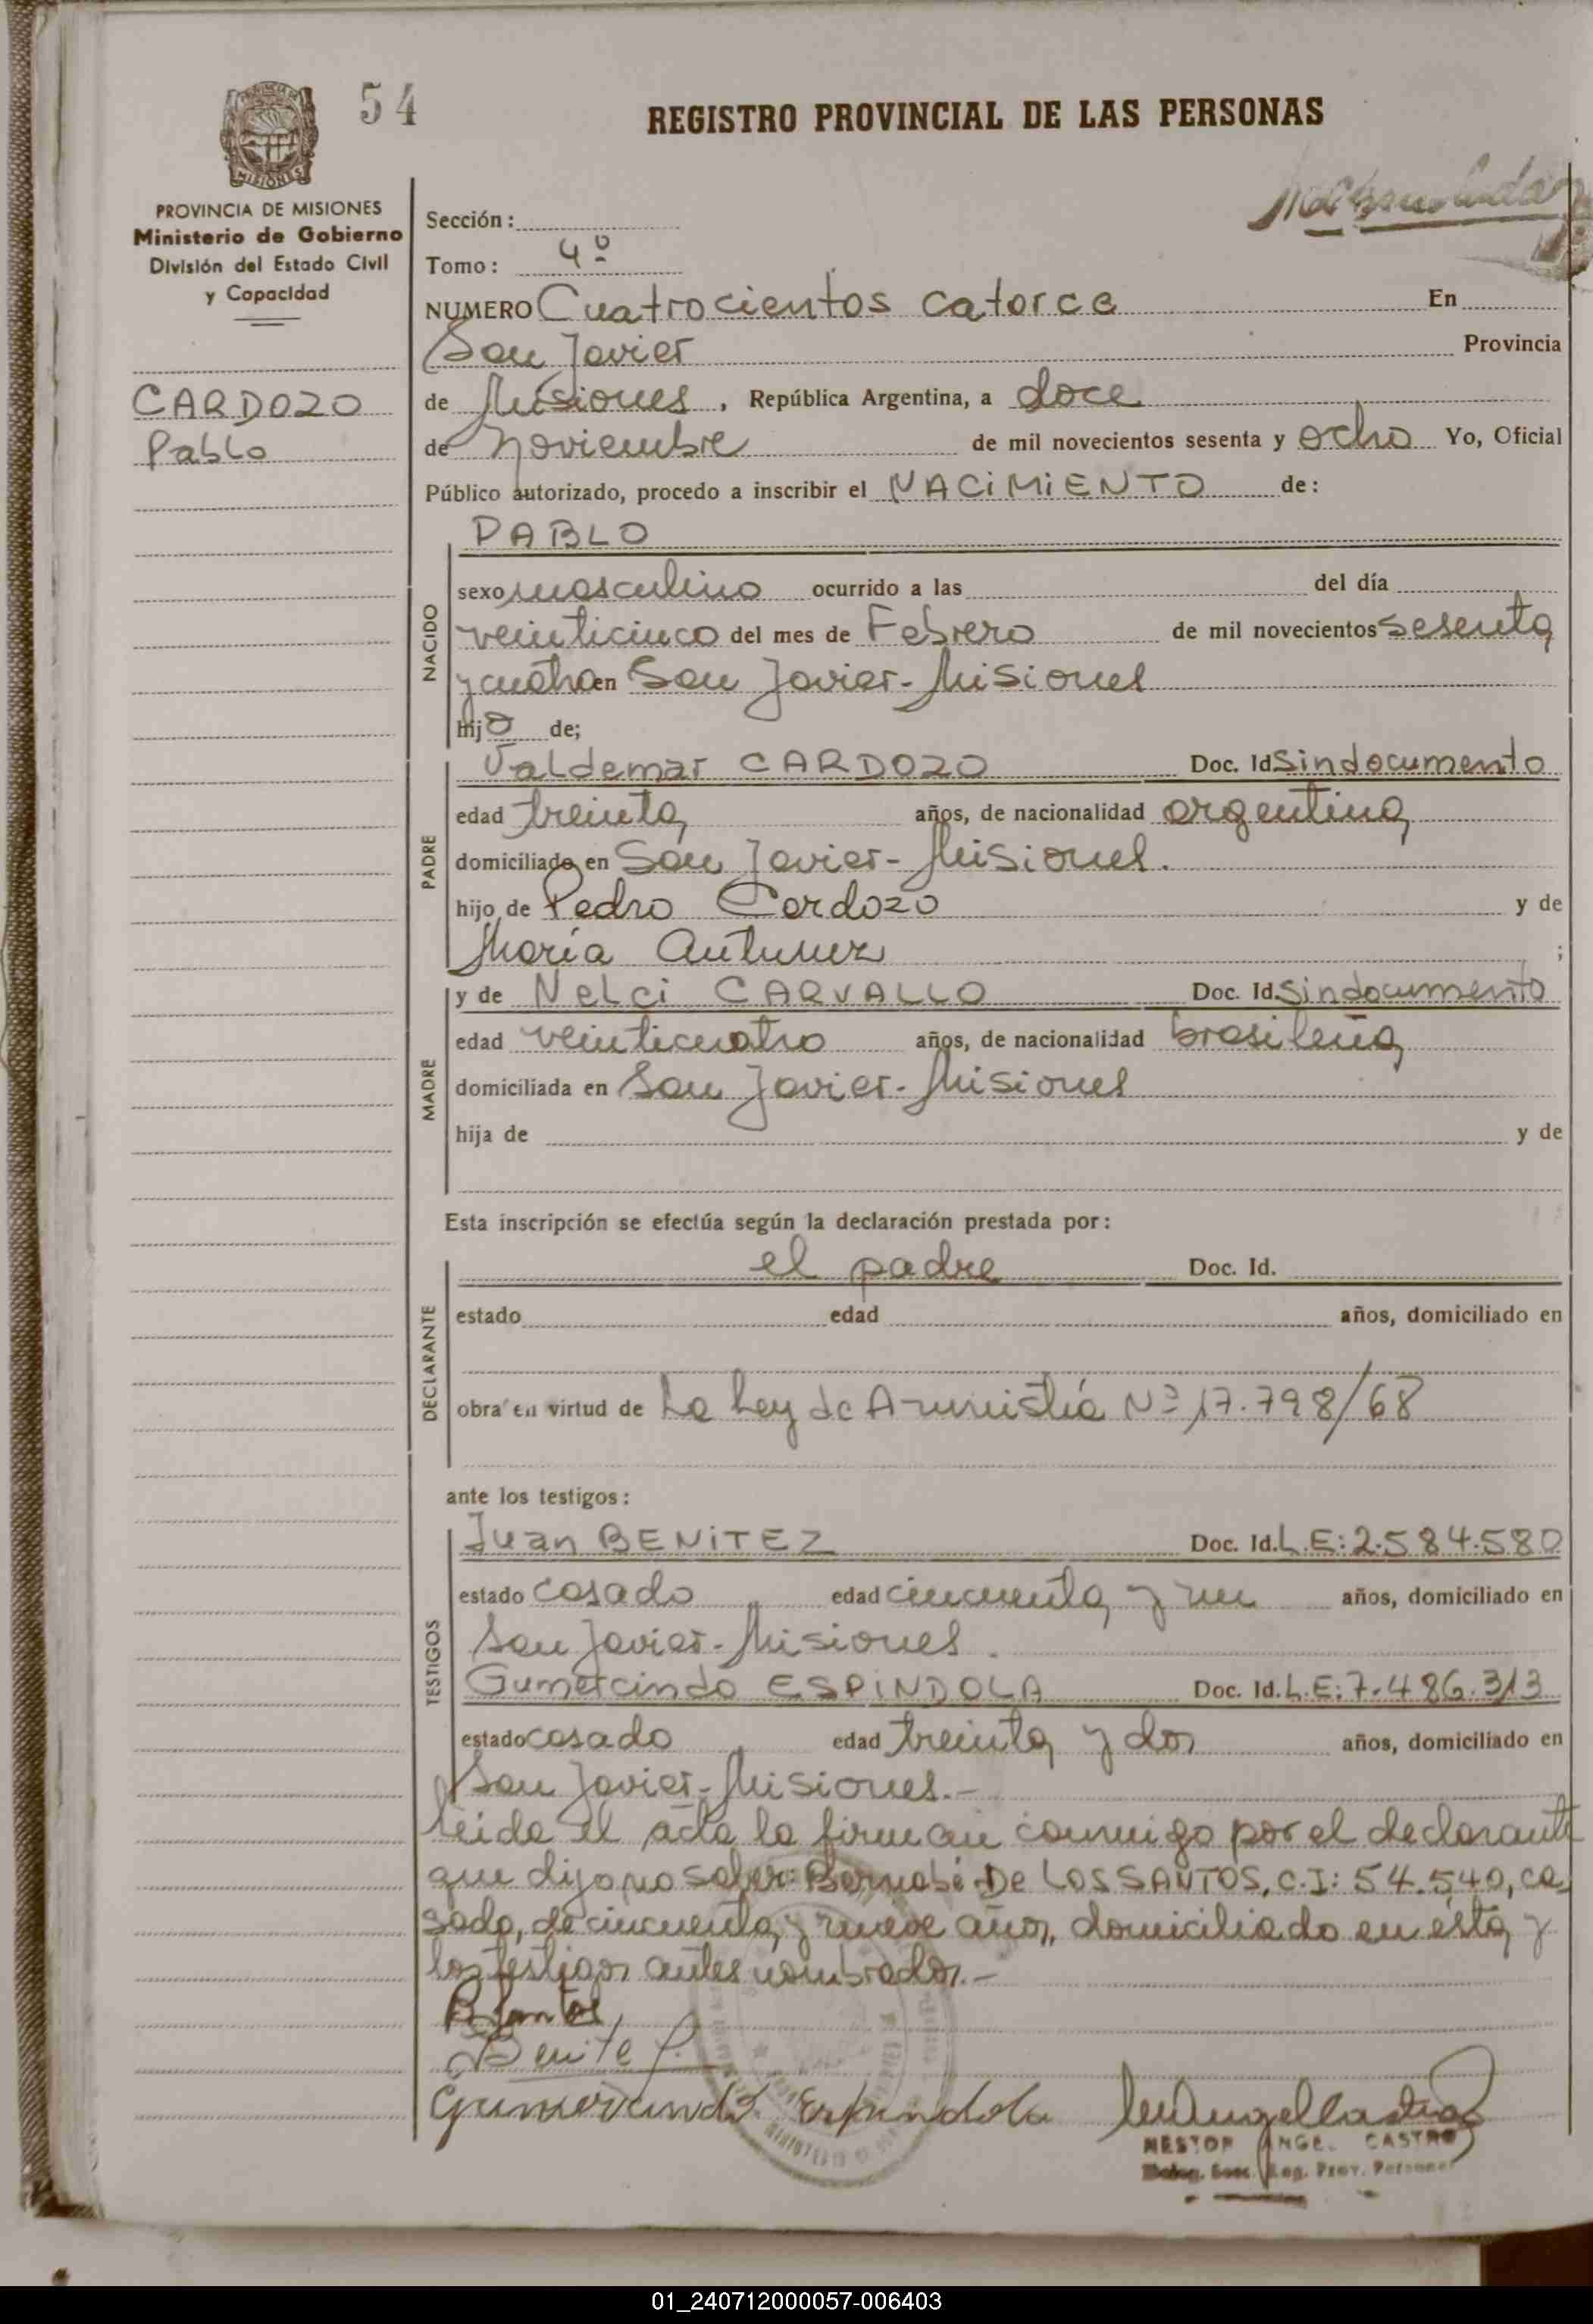 54
REGISTRO PROVINCIAL DE LAS PERSONAS
PROVINCIA DE MISIONES
Ministerio de Gobierno
División del Estado Civil
y Capacidad
CARDOZO
Pablo
Sección:
Tomo: 4º
NUMERO Cuatrocientos catorce En
San Javier Provincia
de Misiones, República Argentina, a doce
de noviembre de mil novecientos sesenta y ocho Yo, Oficial
Público autorizado, procedo a inscribir el NACiMiENTO de:
NACIDO
PABLO
sexo masculino ocurrido a las del día
veinticinco del mes de Febrero de mil novecientos sesenta
y cuatro en San Javier-Misiones
hijo de;
PADRE
Valdemar CARDOZO Doc. Id Sindocumento
edad treinta años, de nacionalidad argentina
domiciliado en San Javier-Misiones.
hijo de Pedro Cardozo y de
María Antunez ;
MADRE
y de Nelci CARVALLO Doc. Id. Sindocumento
edad veinticuatro años, de nacionalidad brasileña
domiciliada en San Javier-Misiones
hija de y de
Esta inscripción se efectúa según la declaración prestada por:
DECLARANTE
el padre Doc. Id.
estado edad años, domiciliado en
obra en virtud de La Ley de Amnistía Nº 17.798/68
ante los testigos:
TESTIGOS
Juan BENiTEZ Doc. Id. L.E: 2.584.580
estado casado edad cincuenta y un años, domiciliado en
San Javier-Misiones.
Gumercindo ESPiNDOLA Doc. Id. L.E: 7.486.313
estado casado edad treinta y dos años, domiciliado en
San Javier-Misiones.-
leida el acta la firman conmigo por el declarante
que dijo no saber: Bernabé De LOS SANTOS, C.I: 54.540, ca
sado, de cincuenta y nueve años, domiciliado en ésta y
los testigos antes nombrados.-
Benite
Gumercindo Espindola
NESTOR ANGEL CASTRO
Reg. Prov. Personas
01_240712000057-006403